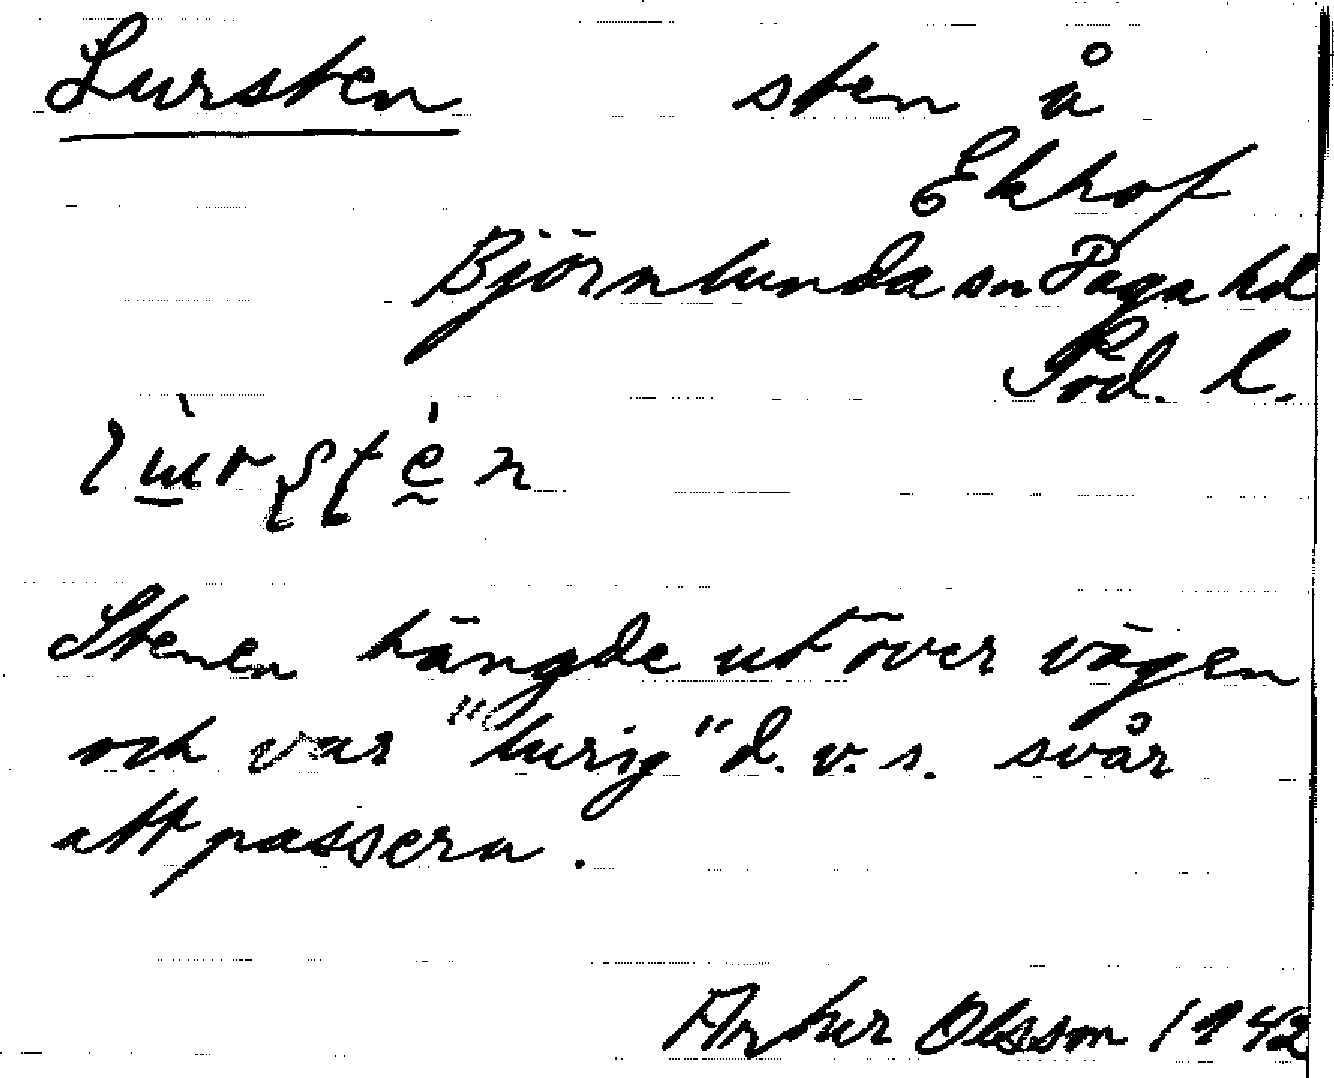 Lursten sten å
Ekhof
Björnlunda sn Daga hd
Söd. l.
Stenen hängde ut över vägen
och var "lurig" d. v. s. svår
att passera.
Arthur Olsson 1942